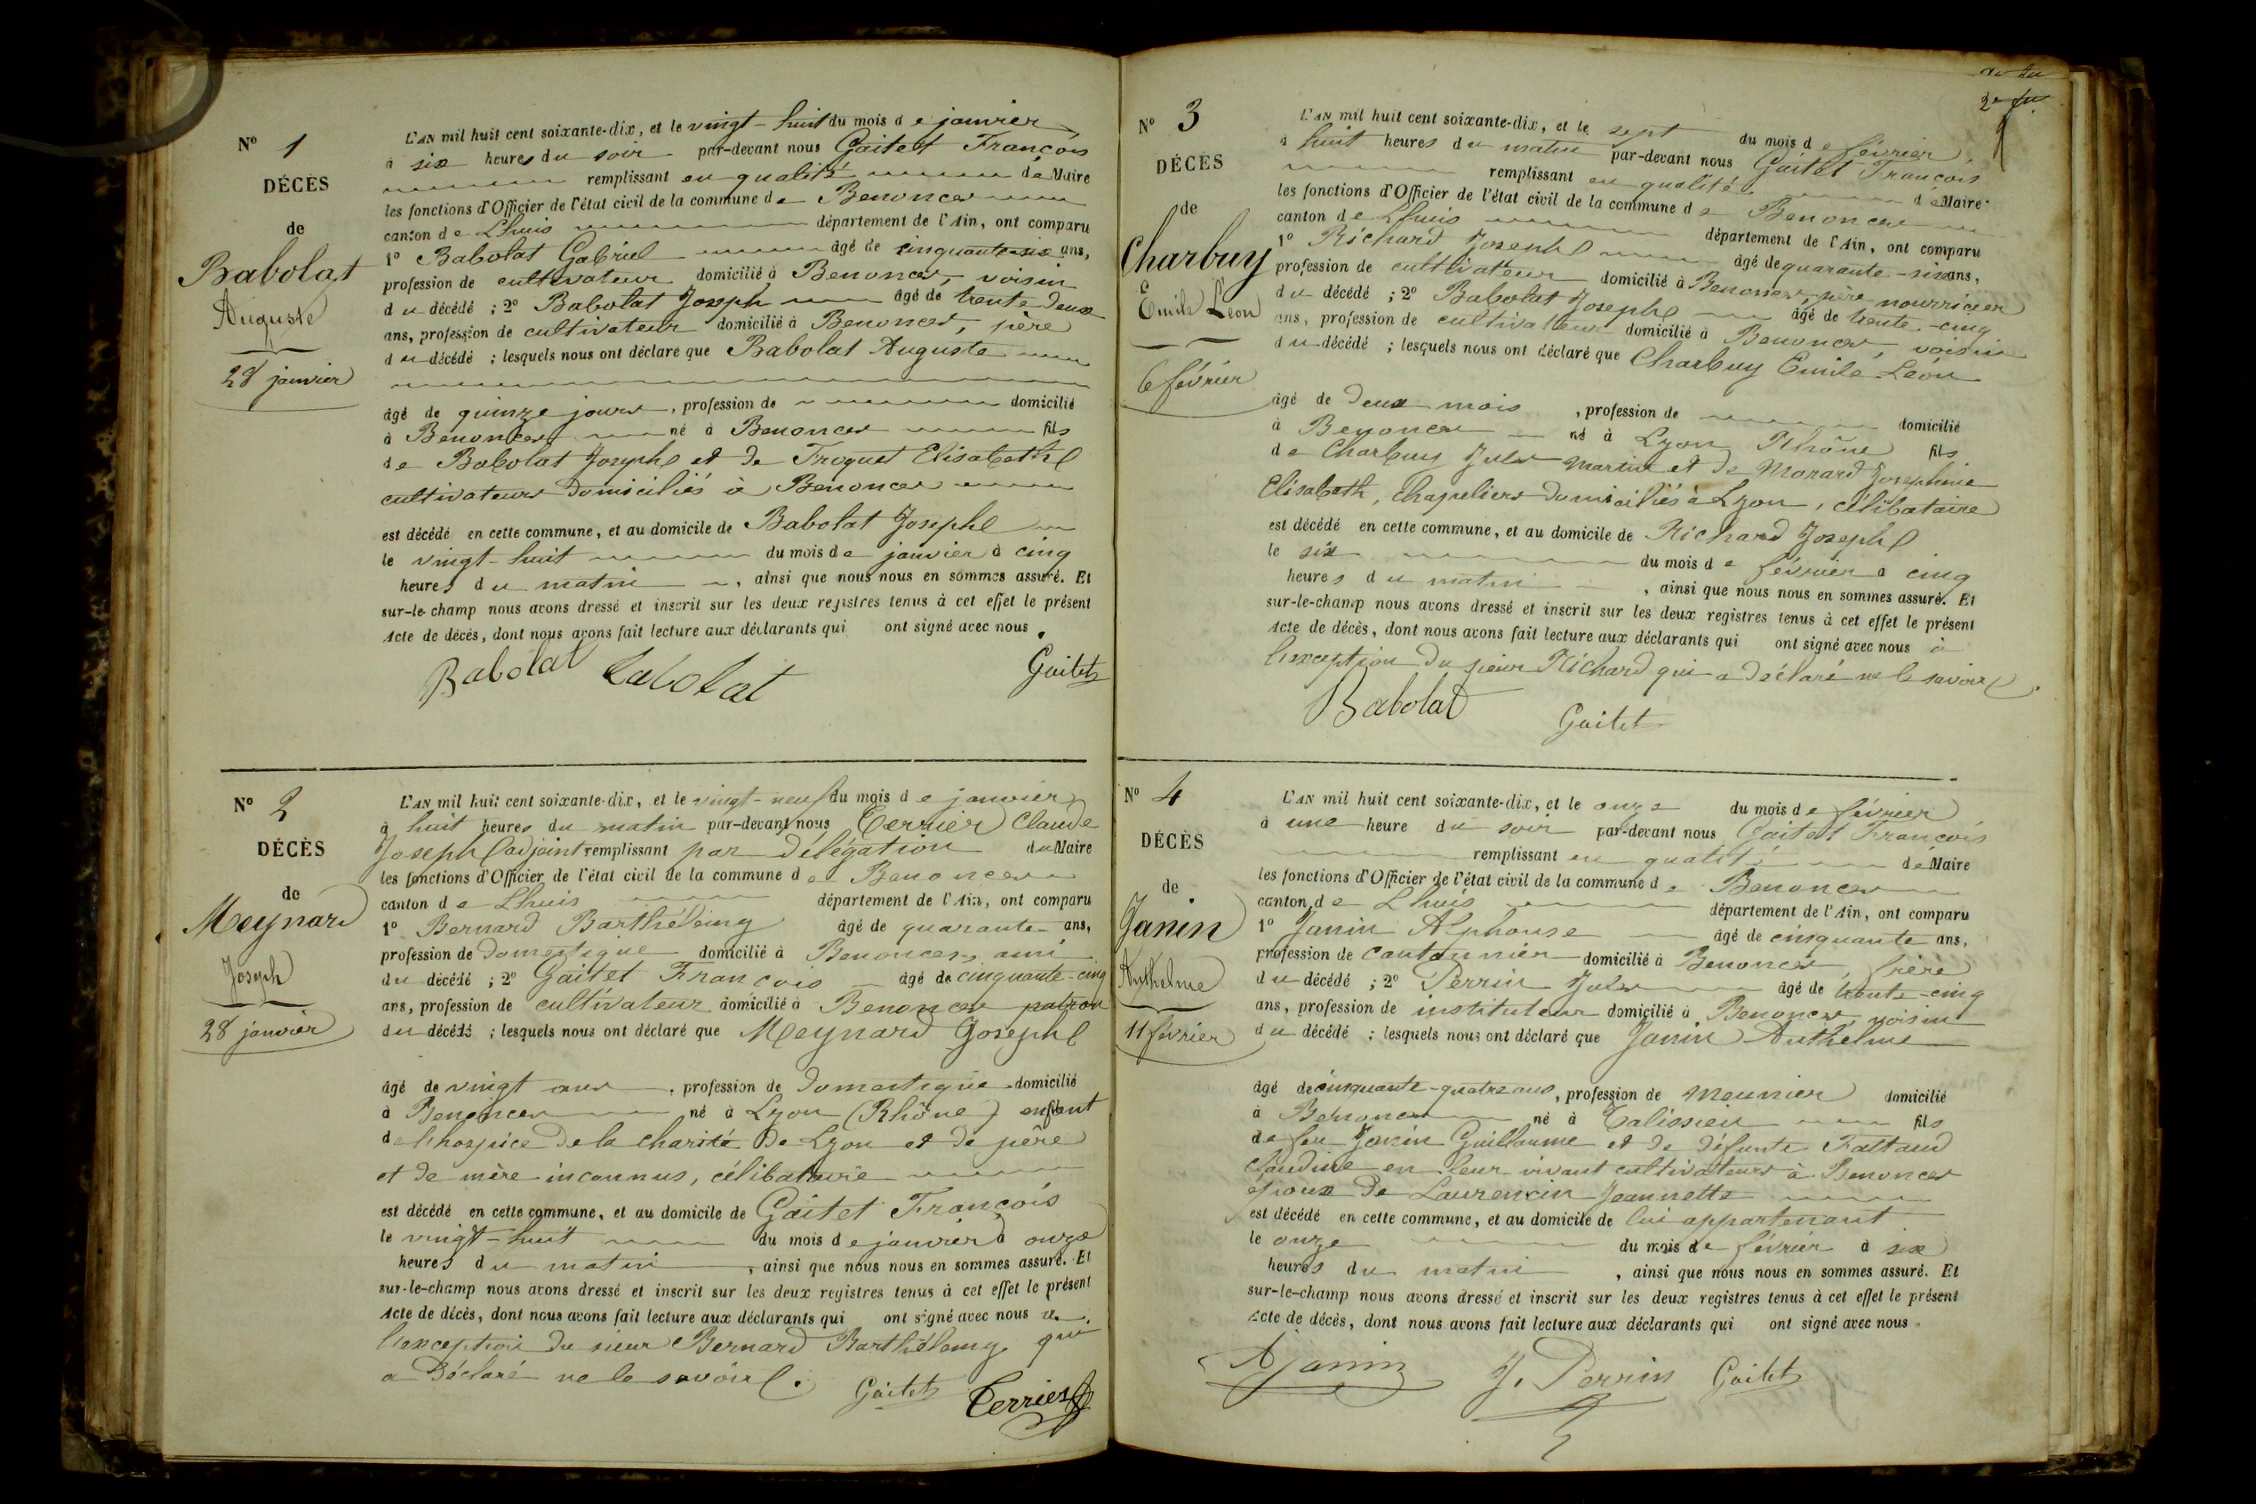 N° 1
DÉCÈS
de
Babolat
Auguste
28 janvier
L'AN mil huit cent soixante-dix, et le vingt-huit du mois de janvier
à six heures du soir par-devant nous Gaitet François
remplissant en qualité de Maire
les fonctions d'Officier de l'état civil de la commune de Benonces
canton de Lhuis département de l'Ain, ont comparu
1° Babolat Gabriel âgé de cinquante-six ans,
profession de cultivateur domicilié à Benonces, voisin
du décédé ; 2° Babolat Joseph âgé de trente deux
ans, profession de cultivateur domicilié à Benonces, père
du décédé ; lesquels nous ont déclaré que Babolat Auguste
âgé de quinze jours, profession de domicilié
à Benonces né à Benonces fils
de Babolat Joseph et de Troquet Elisabeth
cultivateurs domiciliés à Benonces
est décédé en cette commune, et au domicile de Babolat Joseph
le vingt-huit du mois de janvier à cinq
heures du matin, ainsi que nous nous en sommes assuré. Et
sur-le-champ nous avons dressé et inscrit sur les deux registres tenus à cet effet le présent
Acte de décès, dont nous avons fait lecture aux déclarants qui ont signé avec nous.
Babolat Babolat Gaitet
N° 2
DÉCÈS
de
Meynard
Joseph
28 janvier
L'AN mil huit cent soixante-dix, et le vingt-neuf du mois de janvier
à huit heures du matin par-devant nous Terrier Claude
Joseph adjoint remplissant par délégation du Maire
les fonctions d'Officier de l'état civil de la commune de Benonces
canton de Lhuis département de l'Ain, ont comparu
1° Bernard Barthélemy âgé de quarante ans,
profession de domestique domicilié à Benonces, ami
du décédé ; 2° Gaitet François âgé de cinquante-cinq
ans, profession de cultivateur domicilié à Benonces patron
du décédé ; lesquels nous ont déclaré que Meynard Joseph
âgé de vingt ans, profession de domestique domicilié
à Benonces né à Lyon (Rhône) enfant
de l'hospice de la charité de Lyon et de père
et de mère inconnus, célibataire
est décédé en cette commune, et au domicile de Gaitet François
le vingt-huit du mois de janvier à onze
heures du matin, ainsi que nous nous en sommes assuré. Et
sur-le-champ nous avons dressé et inscrit sur les deux registres tenus à cet effet le présent
Acte de décès, dont nous avons fait lecture aux déclarants qui ont signé avec nous à
l'exception du sieur Bernard Barthélemy qui
a déclaré ne le savoir.
Gaitet Terrier
2e
N° 3
DÉCÈS
de
Charbuy
Emile Léon
6 février
L'AN mil huit cent soixante-dix, et le sept du mois de février,
à huit heures du matin par-devant nous Gaitet François
remplissant en qualité de Maire
les fonctions d'Officier de l'état civil de la commune de Benonces
canton de Lhuis département de l'Ain, ont comparu
1° Richard Joseph âgé de quarante-six ans,
profession de cultivateur domicilié à Benonces, père nourricier
du décédé ; 2° Babolat Joseph âgé de trente-cinq
ans, profession de cultivateur domicilié à Benonces, voisin
du décédé ; lesquels nous ont déclaré que Charbuy Emile Léon
âgé de deux mois, profession de domicilié
à Benonces né à Lyon Rhône fils
de Charbuy Jules Martin et de Morard Josephine
Elisabeth, chapeliers domiciliés à Lyon, célibataire
est décédé en cette commune, et au domicile de Richard Joseph
le six du mois de février à cinq
heures du matin, ainsi que nous nous en sommes assuré. Et
sur-le-champ nous avons dressé et inscrit sur les deux registres tenus à cet effet le présent
Acte de décès, dont nous avons fait lecture aux déclarants qui ont signé avec nous à
l'exception du sieur Richard qui a déclaré ne le savoir.
Babolat Gaitet
N° 4
DÉCÈS
de
Janin
Anthelme
11 février
L'AN mil huit cent soixante-dix, et le onze du mois de février
à une heure du soir par-devant nous Gaitet François
remplissant en qualité de Maire
les fonctions d'Officier de l'état civil de la commune de Benonces
canton de Lhuis département de l'Ain, ont comparu
1° Janin Alphonse âgé de cinquante ans,
profession de cantonnier domicilié à Benonces, frère
du décédé ; 2° Perrin Jules âgé de trente-cinq
ans, profession de instituteur domicilié à Benonces, voisin
du décédé ; lesquels nous ont déclaré que Janin Anthelme
âgé de cinquante-quatre ans, profession de meunier domicilié
à Benonces né à Talissieu fils
de feu Janin Guillaume et de défunte Fattaud
Claudine en leur vivant cultivateurs à Benonces
époux de Laurencin Jeannette
est décédé en cette commune, et au domicile de lui appartenant
le onze du mois de février à six
heures du matin, ainsi que nous nous en sommes assuré. Et
sur-le-champ nous avons dressé et inscrit sur les deux registres tenus à cet effet le présent
Acte de décès, dont nous avons fait lecture aux déclarants qui ont signé avec nous.
A Janin J. Perrin Gaitet